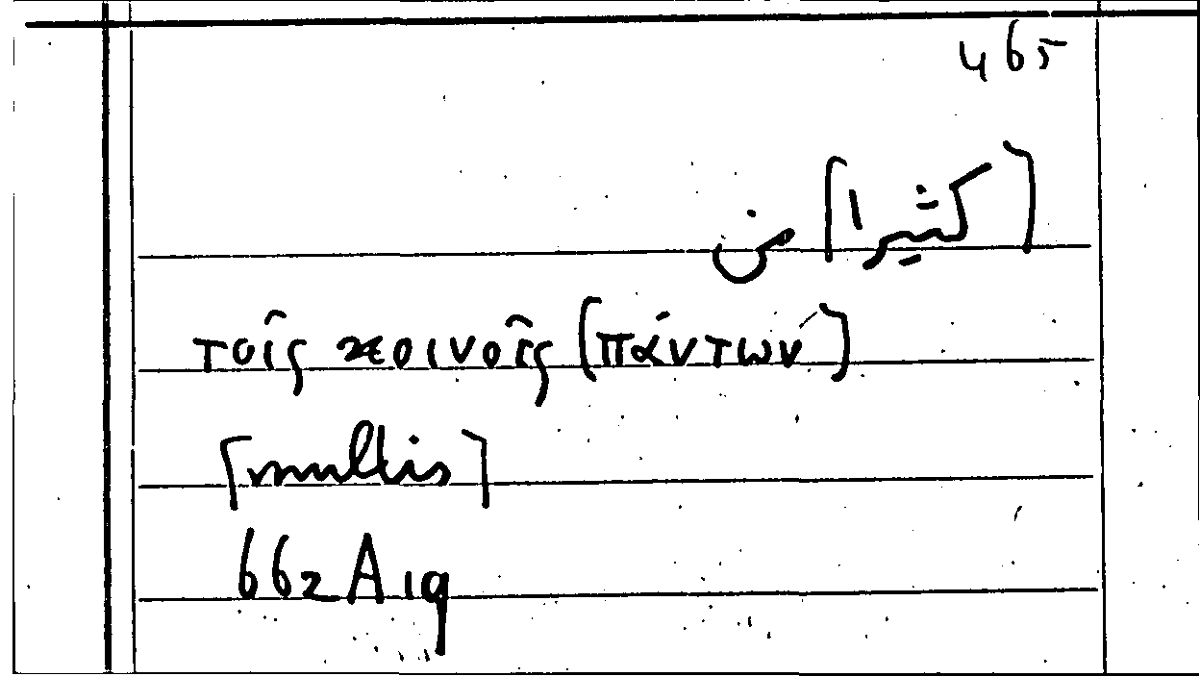 465
[كثيرا] من
τοῖς κοινοῖς [πάντων]
[multis]
662 A 19